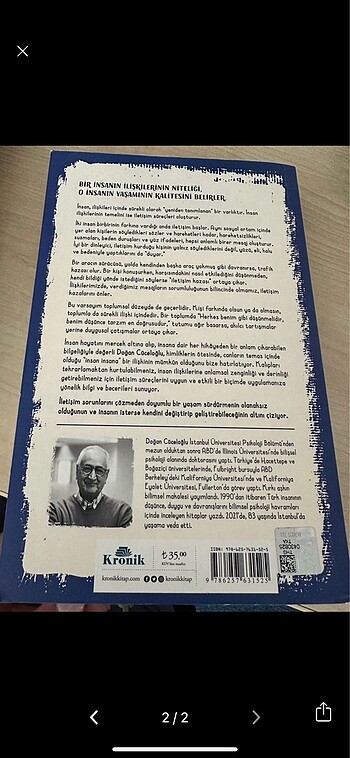 BİR İNSANIN İLİŞKİLERİNİN NİTELİĞİ,
O İNSANIN YAŞAMININ KALİTESİNİ BELİRLER.
İnsan, ilişkileri içinde sürekli olarak "yeniden tanımlanan" bir varlıktır. İnsan
ilişkilerinin temelini ise iletişim süreçleri oluşturur.
İki insan birbirinin farkına vardığı anda iletişim başlar. Aynı sosyal ortam içinde
yer alan kişilerin söyledikleri sözler ve hareketleri kadar, hareketsizlikleri,
susmaları, beden duruşları ve yüz ifadeleri, hepsi anlamlı birer mesaj oluşturur.
İyi bir dinleyici, iletişim kurduğu kişinin yalnız söylediklerini değil, yüzü, eli, kolu
ve bedeniyle yaptıklarını da "duyar."
Bir aracın sürücüsü, yolda kendinden başka araç yokmuş gibi davranırsa, trafik
kazası olur. Bir kişi konuşurken, karşısındakini nasıl etkilediğini düşünmeden,
kendi bildiği yönde istediğini söylerse "iletişim kazası" ortaya çıkar.
İlişkilerimizde, verdiğimiz mesajların sorumluluğunun bilincinde olmamız, iletişim
kazalarını önler.
Bu varsayım toplumsal düzeyde de geçerlidir. Kişi farkında olsun ya da olmasın,
toplumla da sürekli ilişki içindedir. Bir toplumda "Herkes benim gibi düşünmelidir,
benim düşünce tarzım en doğrusudur," tutumu ağır basarsa, akılcı tartışmalar
yerine duygusal çatışmalar ortaya çıkar.
İnsan hayatını mercek altına alıp, insana dair her hikâyeden bir anlam çıkarabilen
bilgeliğiyle değerli Doğan Cüceloğlu, kimliklerin ötesinde, canların teması içinde
olduğu "insan insana" bir ilişkinin mümkün olduğunu bize hatırlatıyor. Kalıpları
tekrarlamaktan kurtulabilmeniz, insan ilişkilerine anlamsal zenginliği ve derinliği
getirebilmeniz için iletişim süreçlerini uygun ve etkili bir biçimde uygulamanıza
yönelik bilgi ve becerileri sunuyor.
İletişim sorunlarını çözmeden doyumlu bir yaşam sürdürmenin olanaksız
olduğunun ve insanın isterse kendini değiştirip geliştirebileceğinin altını çiziyor.
Doğan Cüceloğlu İstanbul Üniversitesi Psikoloji Bölümü'nden
mezun olduktan sonra ABD'de Illinois Üniversitesi'nde bilişsel
psikoloji alanında doktorasını yaptı. Türkiye'de Hacettepe ve
Boğaziçi üniversitelerinde, Fulbright bursuyla ABD
Berkeley'deki Kaliforniya Üniversitesi'nde ve Kaliforniya
Eyalet Üniversitesi, Fullerton'da görev yaptı. Kırkı aşkın
bilimsel makalesi yayımlandı. 1990'dan itibaren Türk insanının
düşünce, duygu ve davranışlarını bilimsel psikoloji kavramları
içinde inceleyen kitaplar yazdı. 2021'de, 83 yaşında İstanbul'da
yaşama veda etti.
Kronik
kronikkitap.com
kronikkitap
₺35,00
KDV'den muaftır
ISBN: 978-625-7631-52-5
9 786257 631525
2/2